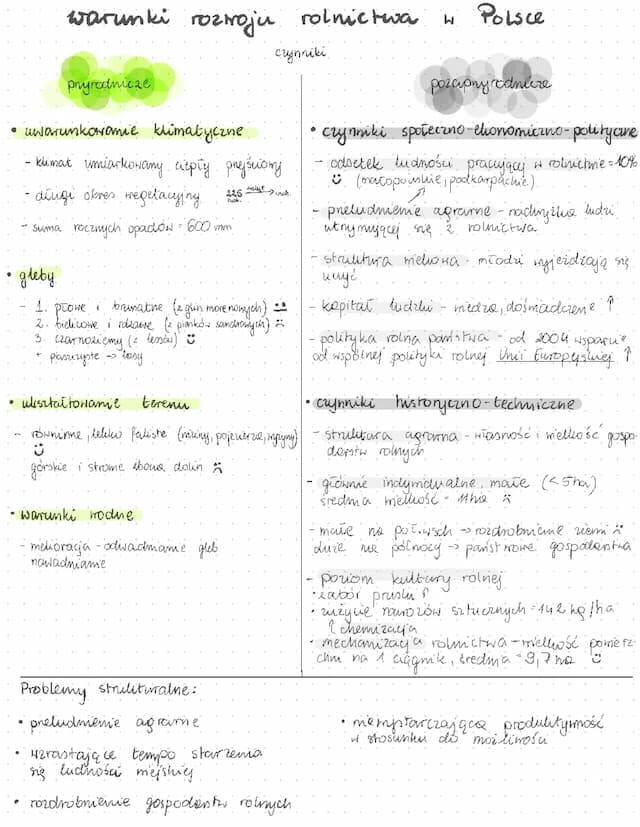 warunki rozwoju rolnictwa w Polsce
czynniki
przyrodnicze
• uwarunkowanie klimatyczne
- klimat umiarkowany ciepły przejściowy
- długi okres wegetacyjny 226
- suma rocznych opadów = 600 mm
• gleby
- 1. płowe i brunatne (z glin morenowych)
2. bielicowe i rdzawe (z piasków sandrowych)
3. czarnoziemy (z lessów)
+ piaszczyste → lasy
• ukształtowanie terenu
- równinne, lekko faliste (niziny, pojezierza, wyżyny)
górskie i strome zbocza dolin
• warunki wodne
- melioracja - odwadnianie gleb
nawadnianie
pozaprzyrodnicze
• czynniki społeczno-ekonomiczno-polityczne
- odsetek ludności pracującej w rolnictwie = 10%
(małopolskie, podkarpackie)
- przeludnienie agrarne - nadwyżka ludzi
utrzymującej się z rolnictwa
- struktura wiekowa - młodzi wyjeżdżają się
uczyć
- kapitał ludzki - wiedza, doświadczenie ↑
- polityka rolna państwa - od 2004 wsparcie
od wspólnej polityki rolnej Unii Europejskiej ↑
• czynniki historyczno-techniczne
- struktura agrarna - własność i wielkość gospo-
darstw rolnych
- głównie indywidualne, małe (<5ha)
średnia wielkość = 11ha
- małe na poł.wsch → rozdrobnienie ziemi
duże na północy → państwowe gospodarstwa
- poziom kultury rolnej
• zabór pruski ↑
• zużycie nawozów sztucznych = 142 kg/ha
↑ chemizacja
• mechanizacja rolnictwa - wielkość powierz-
chni na 1 ciągnik, średnia = 9,7 ha
Problemy strukturalne:
• przeludnienie agrarne
• wzrastające tempo starzenia
się ludności miejskiej
• rozdrobnienie gospodarstw rolnych
• niewystarczającą produktywność
w stosunku do możliwości